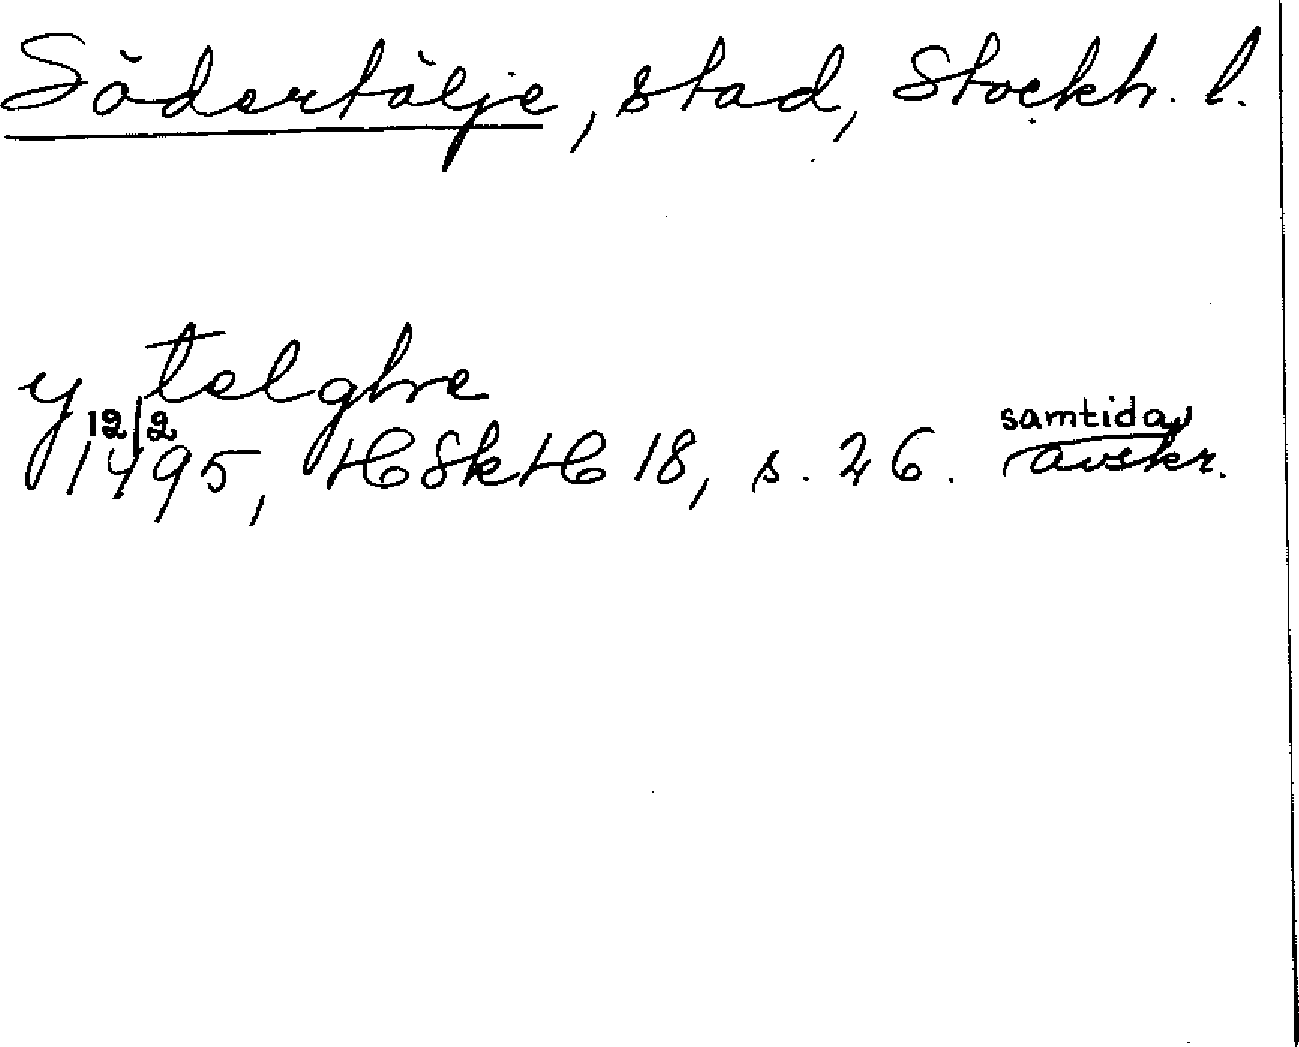 Södertälje, stad, Stockh. l.
y telghe
12/2 samtida
1495, HSkH 18, s. 26. avskr.